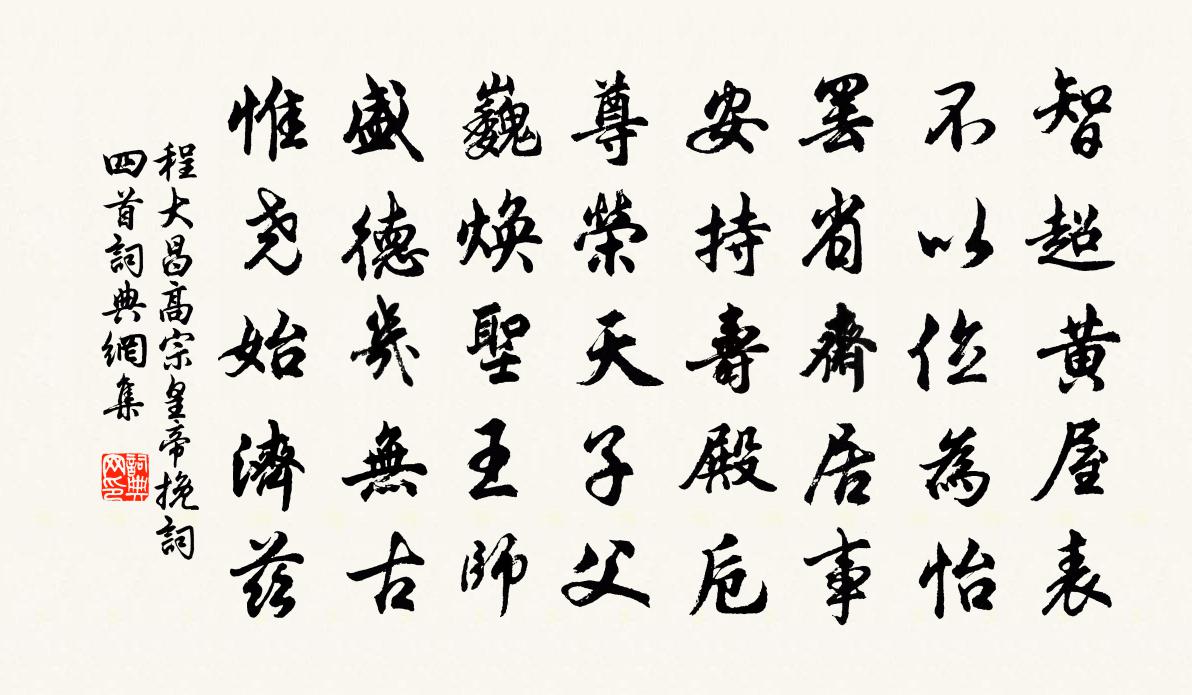 智超黄屋表
不以位為怡
罢省齋居事
安持壽殿卮
尊榮天子父
巍焕聖王師
盛德幾無古
惟尧始濟茲
程大昌高宗皇帝挽詞
四首詞典網集
詞典
网印